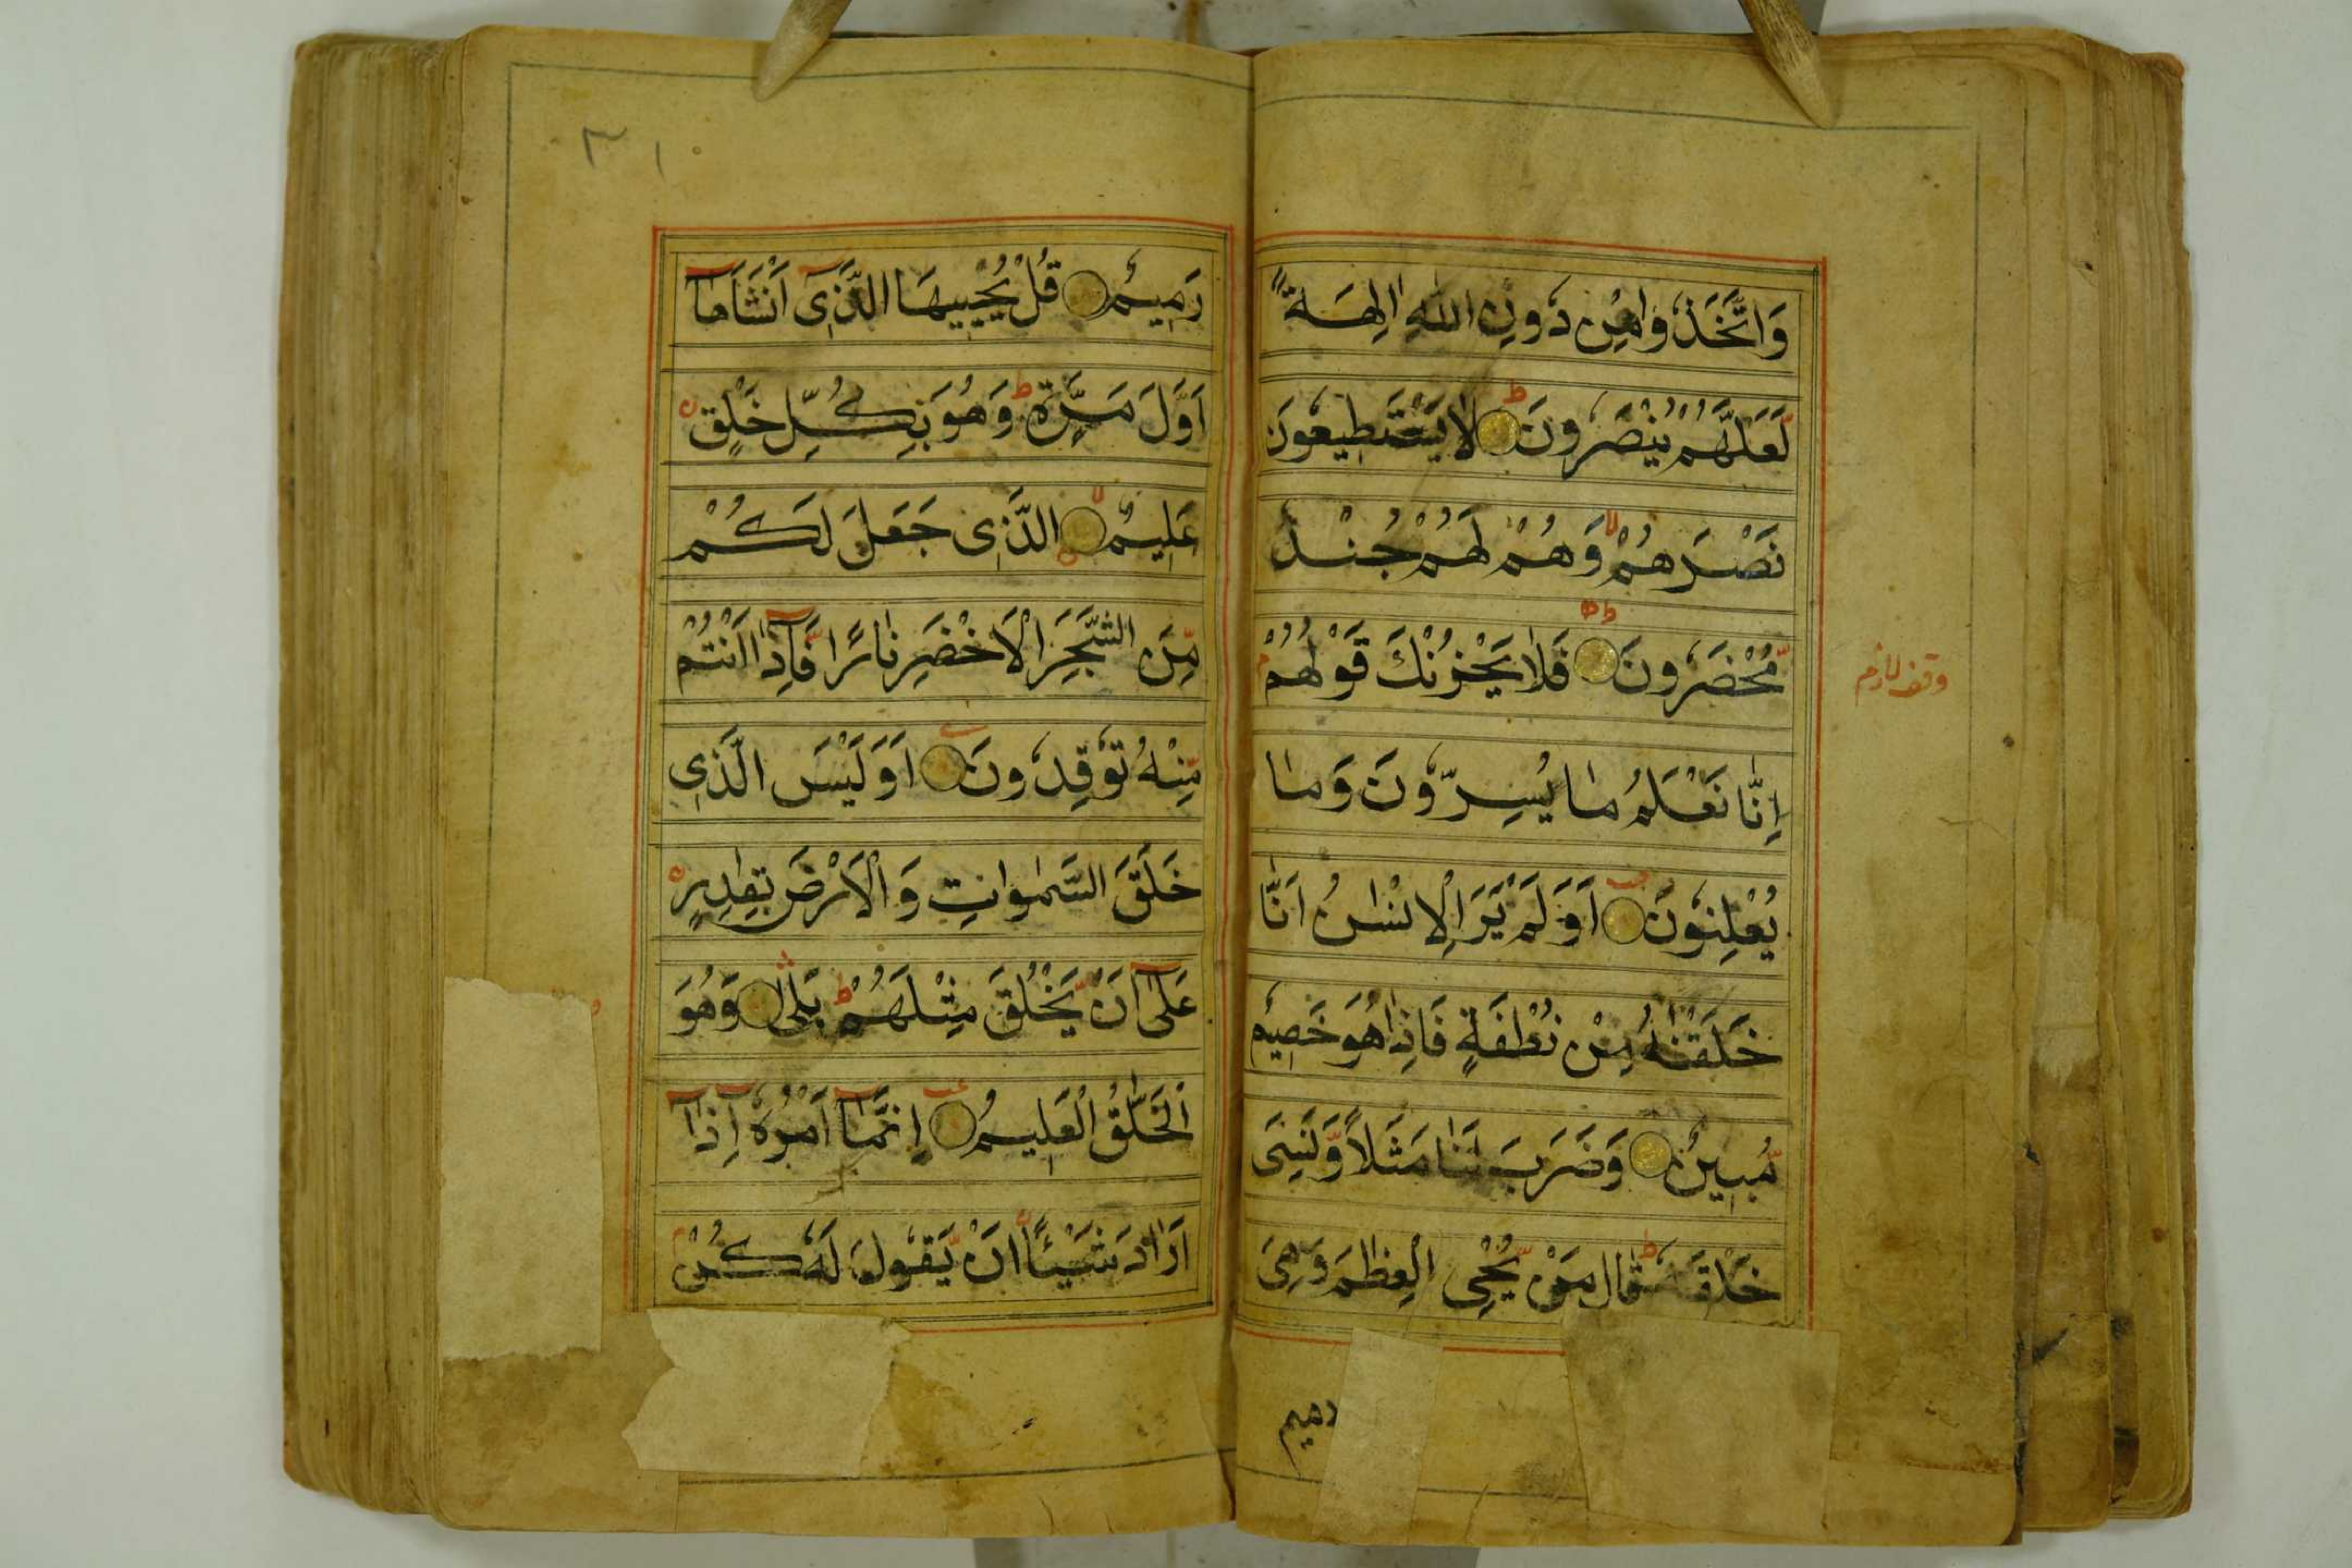 وَاتَّخَذُوا مِنْ دُونِ اللّٰهِ اٰلِهَةً
لَّعَلَّهُمْ يُنْصَرُونَ ط لَا يَسْتَطِيعُونَ
نَصْرَهُمْ لا وَهُمْ لَهُمْ جُنْدٌ
مُّحْضَرُونَ فَلَا يَحْزُنْكَ قَوْلُهُمْ م
وقف لازم
اِنَّا نَعْلَمُ مَا يُسِرُّونَ وَمَا
يُعْلِنُونَ اَوَلَمْ يَرَ الْاِنْسٰنُ اَنَّا
خَلَقْنٰهُ مِنْ نُطْفَةٍ فَاِذَا هُوَ خَصِيمٌ
مُّبِينٌ وَضَرَبَ لَنَا مَثَلًا وَّنَسِىَ
خَلْقَهُ ط قَالَ مَنْ يُّحْىِ الْعِظٰمَ وَهِىَ
رميم
٣١٠
رَمِيمٌ قُلْ يُحْيِيهَا الَّذِىٓ اَنْشَاَهَآ
اَوَّلَ مَرَّةٍ ط وَهُوَ بِكُلِّ خَلْقٍ
عَلِيمٌ لا الَّذِى جَعَلَ لَكُمْ
مِّنَ الشَّجَرِ الْاَخْضَرِ نَارًا فَّاِذَآ اَنْتُمْ
مِّنْهُ تُوقِدُونَ اَوَلَيْسَ الَّذِى
خَلَقَ السَّمٰوَاتِ وَالْاَرْضَ بِقٰدِرٍ
عَلٰٓى اَنْ يَّخْلُقَ مِثْلَهُمْ ط بَلٰى وَهُوَ
الْخَلّٰقُ الْعَلِيمُ اِنَّمَآ اَمْرُهُٓ اِذَآ
اَرَادَ شَيْئًا اَنْ يَّقُولَ لَهُ كُنْ